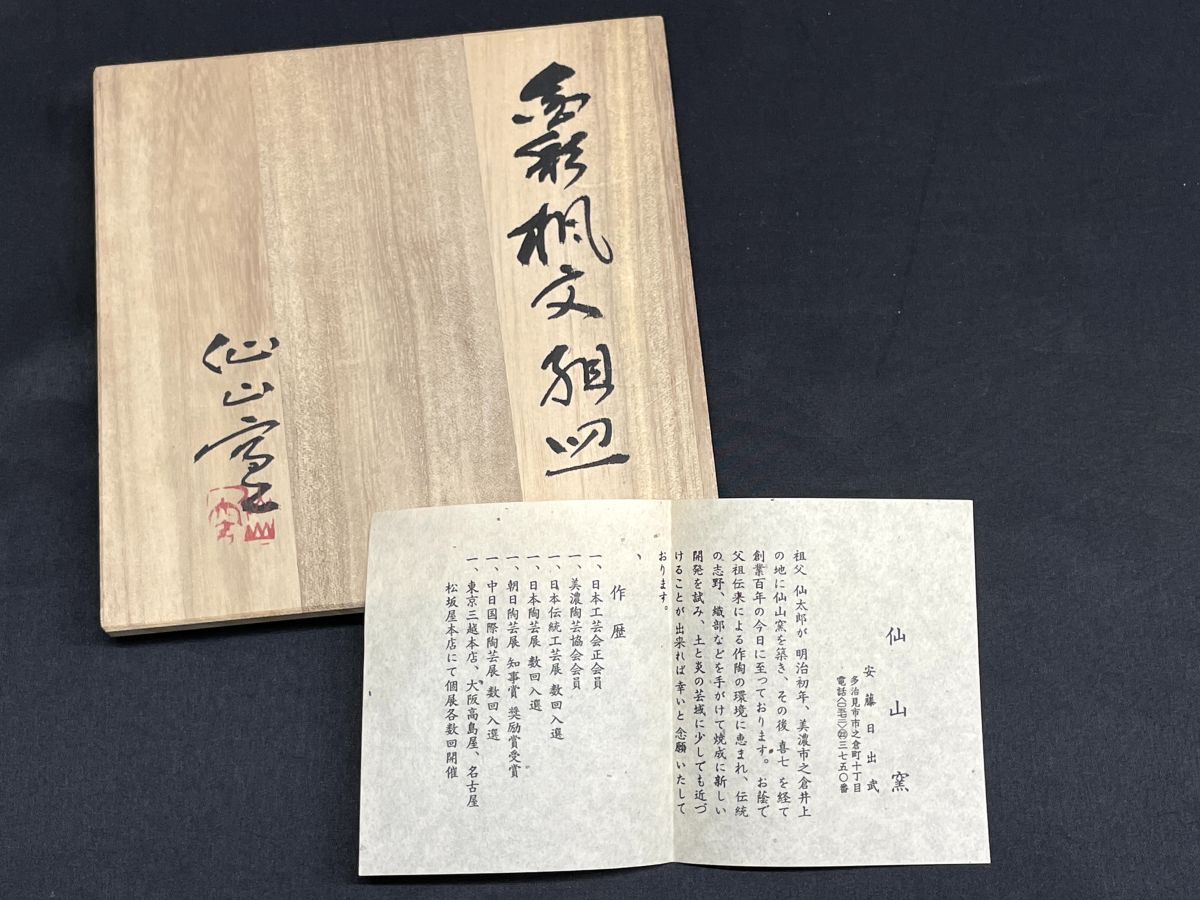 彩楓文組皿
仙山窯
仙山窯
安藤日出武
多治見市市之倉町十丁目
電話〈〇五七二〉㉒三七五〇番
祖父 仙太郎が 明治初年、美濃市之倉井上
の地に仙山窯を築き、その後 喜七 を経て
創業百年の今日に至っております。お蔭で
父祖伝来による作陶の環境に恵まれ、伝統
の志野、織部などを手がけて焼成に新しい
開発を試み、土と炎の芸域に少しでも近づ
けることが 出来れば 幸いと 念願 いたして
おります。
作歴
一、日本工芸会正会員
一、美濃陶芸協会会員
一、日本伝統工芸展 数回入選
一、日本陶芸展 数回入選
一、朝日陶芸展 知事賞 奨励賞受賞
一、中日国際陶芸展 数回入選
一、東京三越本店、大阪高島屋、名古屋
松坂屋本店にて個展各数回開催